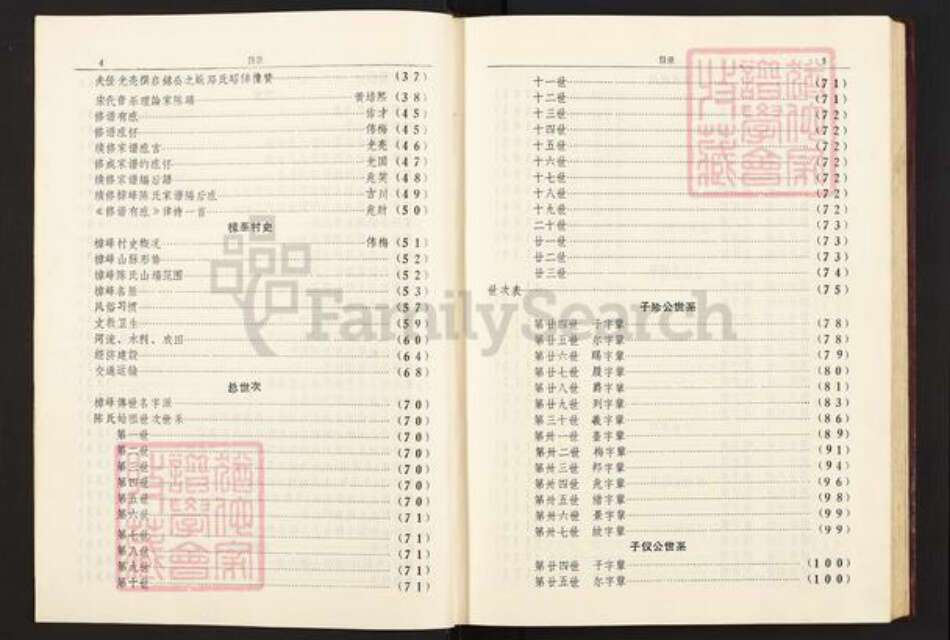 4 目录
宋代音乐理论家陈旸 黄培熙 (38)
修谱有感 (45)
修谱感怀 伟梅 (45)
续修家谱感言 光亮 (46)
修成家谱的感怀 光国 (47)
续修家谱编后语 (48)
续修樟峰陈氏家谱隔后感 吉川 (49)
《修谱有感》律诗一首 (50)
樟峰村史
樟峰村史概况 伟梅 (51)
樟峰山脉形势 (52)
樟峰陈氏山场范围 (52)
樟峰名胜 (53)
风俗习惯 (57)
文教卫生 (59)
河流、水利、农田 (60)
经济建设 (64)
交通运输 (68)
总世次
樟峰传世名字派 (70)
陈氏始祖世次世系 (70)
第一世 (70)
第二世 (70)
第三世 (70)
第四世 (70)
第五世 (70)
第六世 (71)
第七世 (71)
第八世 (71)
第九世 (71)
第十世 (71)
目录 5
十一世 (71)
十二世 (71)
十三世 (72)
十四世 (72)
十五世 (72)
十六世 (72)
十七世 (72)
十八世 (72)
十九世 (72)
二十世 (73)
廿一世 (73)
廿二世 (73)
廿三世 (74)
世次表 (75)
公世系
第廿四世 子字辈 (78)
第廿五世 尔字辈 (78)
第廿六世 赐字辈 (79)
第廿七世 履字辈 (80)
第廿八世 爵字辈 (81)
第廿九世 列字辈 (83)
第三十世 羲字辈 (86)
第卅一世 字辈 (89)
第卅二世 梅字辈 (91)
第卅三世 邦字辈 (94)
第卅四世 兆字辈 (96)
第卅五世 绪字辈 (98)
第卅六世 景字辈 (99)
第卅七世 字辈 (99)
子仪公世系
第廿四世 子字辈 (100)
第廿五世 尔字辈 (100)
FamilySearch